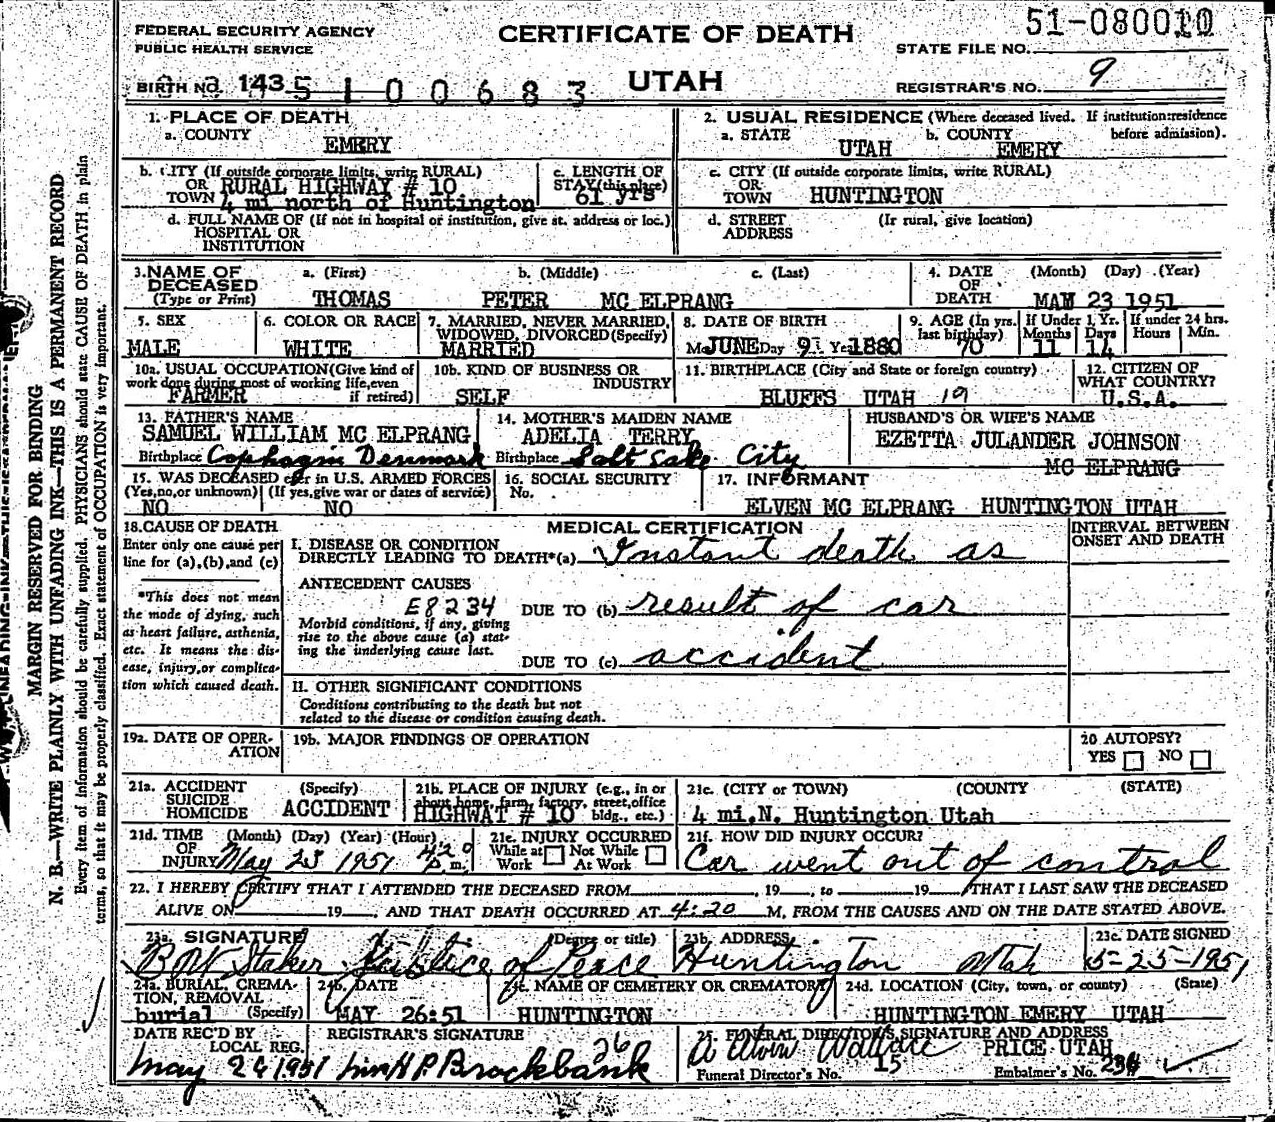 51-080010
FEDERAL SECURITY AGENCY
PUBLIC HEALTH SERVICE
CERTIFICATE OF DEATH
STATE FILE NO.
BIRTH NO. 143 5 1 0 0 6 8 3
UTAH
REGISTRAR'S NO. 9
MARGIN RESERVED FOR BINDING
N. B.—WRITE PLAINLY WITH UNFADING INK—THIS IS A PERMANENT RECORD
Every item of information should be carefully supplied. PHYSICIANS should state CAUSE OF DEATH in plain
terms, so that it may be properly classified. Exact statement of OCCUPATION is very important.
1. PLACE OF DEATH
a. COUNTY
EMERY
2. USUAL RESIDENCE (Where deceased lived. If institution:residence before admission).
a. STATE UTAH b. COUNTY EMERY
b. CITY (If outside corporate limits, write RURAL)
OR TOWN RURAL HIGHWAY # 10
4 mi north of Huntington
c. LENGTH OF STAY (this place)
61 yrs
c. CITY (If outside corporate limits, write RURAL)
OR TOWN HUNTINGTON
d. FULL NAME OF (If not in hospital or institution, give st. address or loc.)
HOSPITAL OR INSTITUTION
d. STREET ADDRESS (If rural, give location)
3. NAME OF DECEASED (Type or Print)
a. (First) b. (Middle) c. (Last)
THOMAS PETER MC ELPRANG
4. DATE OF DEATH (Month) (Day) (Year)
MAY 23 1951
5. SEX
MALE
6. COLOR OR RACE
WHITE
7. MARRIED, NEVER MARRIED, WIDOWED, DIVORCED (Specify)
MARRIED
8. DATE OF BIRTH
JUNE Day 9 1880
9. AGE (In yrs. last birthday)
70
If Under 1 Yr. Months Days
11 14
If under 24 hrs. Hours Min.
10a. USUAL OCCUPATION (Give kind of work done during most of working life, even if retired)
FARMER
10b. KIND OF BUSINESS OR INDUSTRY
SELF
11. BIRTHPLACE (City and State or foreign country)
BLUFFS UTAH 19
12. CITIZEN OF WHAT COUNTRY?
U.S.A.
13. FATHER'S NAME
SAMUEL WILLIAM MC ELPRANG
Birthplace Cophagin Denmark
14. MOTHER'S MAIDEN NAME
ADELIA TERRY
Birthplace Salt Lake City
HUSBAND'S OR WIFE'S NAME
EZETTA JULANDER JOHNSON
MC ELPRANG
15. WAS DECEASED ever in U.S. ARMED FORCES
(Yes, no, or unknown) (If yes, give war or dates of service)
NO NO
16. SOCIAL SECURITY No.
17. INFORMANT
ELVEN MC ELPRANG HUNTINGTON UTAH
18. CAUSE OF DEATH
Enter only one cause per line for (a), (b), and (c)
*This does not mean the mode of dying, such as heart failure, asthenia, etc. It means the disease, injury, or complication which caused death.
MEDICAL CERTIFICATION
INTERVAL BETWEEN ONSET AND DEATH
I. DISEASE OR CONDITION
DIRECTLY LEADING TO DEATH*(a) Instant death as
ANTECEDENT CAUSES
E8234
DUE TO (b) result of car
Morbid conditions, if any, giving rise to the above cause (a) stating the underlying cause last.
DUE TO (c) accident
II. OTHER SIGNIFICANT CONDITIONS
Conditions contributing to the death but not related to the disease or condition causing death.
19a. DATE OF OPERATION
19b. MAJOR FINDINGS OF OPERATION
20 AUTOPSY?
YES NO
21a. ACCIDENT SUICIDE HOMICIDE (Specify)
ACCIDENT
21b. PLACE OF INJURY (e.g., in or about home, farm, factory, street, office bldg., etc.)
HIGHWAT # 10
21c. (CITY or TOWN) (COUNTY) (STATE)
4 mi.N. Huntington Utah
21d. TIME OF INJURY (Month) (Day) (Year) (Hour)
May 23 1951 4:20 P m.
21e. INJURY OCCURRED
While at Work Not While At Work
21f. HOW DID INJURY OCCUR?
Car went out of control
22. I HEREBY CERTIFY THAT I ATTENDED THE DECEASED FROM , 19 , to 19 , THAT I LAST SAW THE DECEASED
ALIVE ON 19 , AND THAT DEATH OCCURRED AT 4:20 M, FROM THE CAUSES AND ON THE DATE STATED ABOVE.
23a. SIGNATURE (Degree or title)
B W Staker Justice of Peace
23b. ADDRESS
Huntington Utah
23c. DATE SIGNED
5-25-1951
24a. BURIAL, CREMATION, REMOVAL (Specify)
burial
24b. DATE
MAY 26:51
24c. NAME OF CEMETERY OR CREMATORY
HUNTINGTON
24d. LOCATION (City, town, or county) (State)
HUNTINGTON EMERY UTAH
DATE REC'D BY LOCAL REG.
May 26 1951
REGISTRAR'S SIGNATURE 26
H P Brockbank
25. FUNERAL DIRECTOR'S SIGNATURE AND ADDRESS
Elvin Wallace PRICE UTAH
Funeral Director's No. 15 Embalmer's No. 234